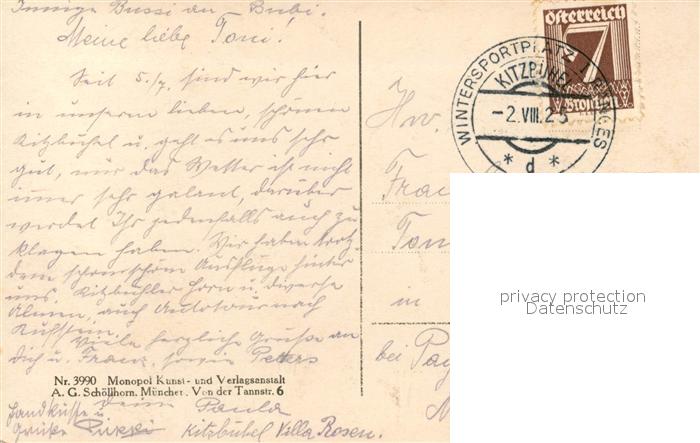 Innige Bussi an Bubi.
Meine liebe Toni!
Seit 5./7. sind wir hier
in unserem lieben, schönen
Kitzbühel u. geht es uns sehr
gut, nur das Wetter ist nicht
immer sehr galant, darüber
werdet Ihr jedenfalls auch zu
klagen haben. Wir haben trotz
dem schon schöne Ausflüge hinter
uns. Kitzbühler Horn u. diverse
Almen, auch Autotour nach
Kufstein.
Viele herzliche Grüße an
Dich u. Franz, sowie Peters
Nr. 3990 Monopol Kunst- und Verlagsanstalt
A. G. Schöllhorn, München, Von der Tannstr. 6
Deine Paula
Handküsse u.
Grüße Kitzbühel Villa Rosen.
Österreich
7
Groschen
WINTERSPORTPLATZ I. RANGES
KITZBÜHEL
-2.VIII.25
* d *
Frau
Ton
in
bei
privacy protection
Datenschutz